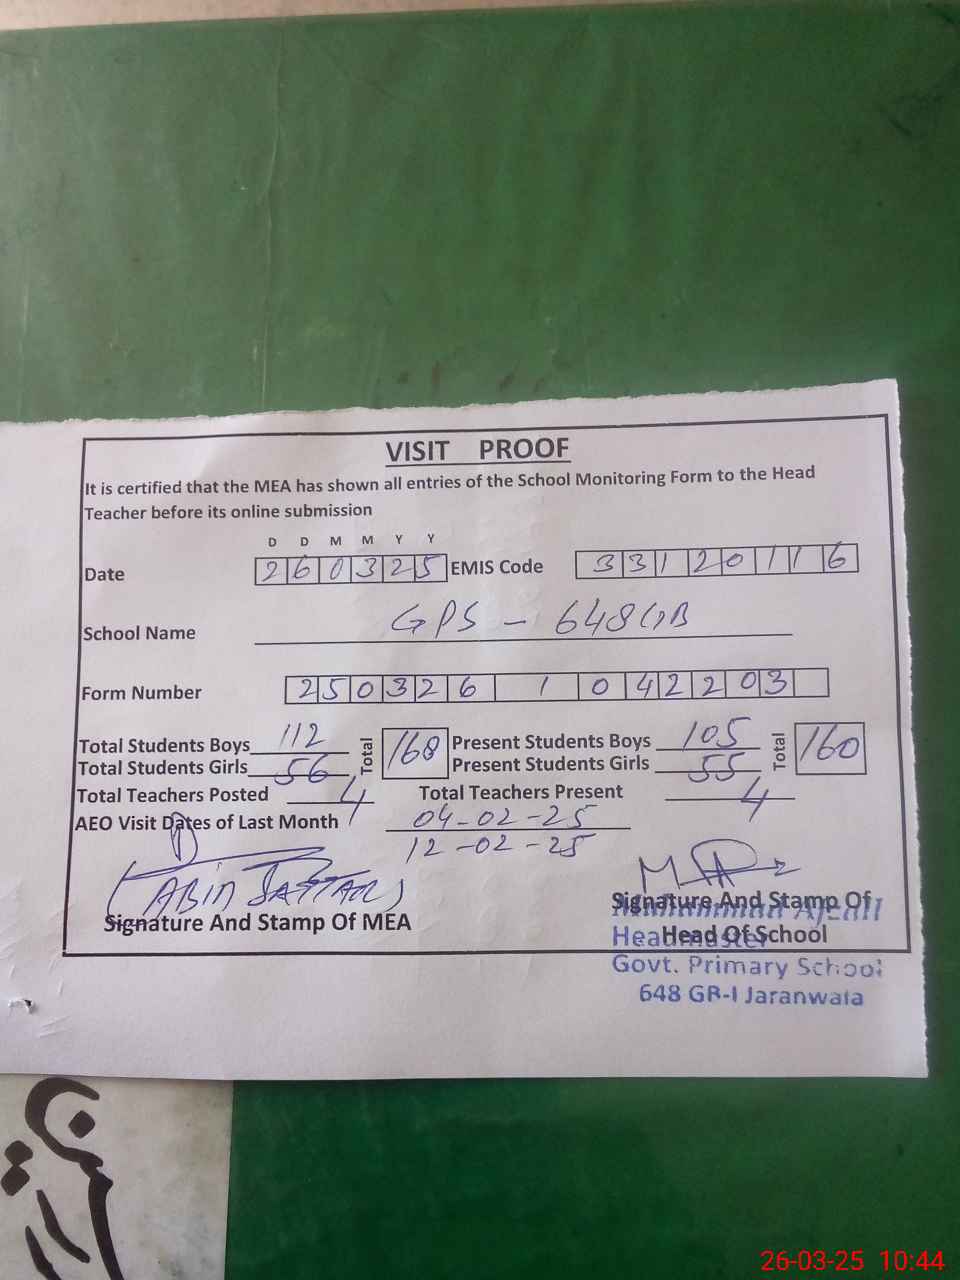 VISIT PROOF
It is certified that the MEA has shown all entries of the School Monitoring Form to the Head
Teacher before its online submission
D D M M Y Y
Date 260325 EMIS Code 33120116
School Name GPS - 648GB
Form Number 250326 1 0 42203
Total Students Boys 112 Total 168 Present Students Boys 105 Total 160
Total Students Girls 56 Present Students Girls 55
Total Teachers Posted 4 Total Teachers Present 4
AEO Visit Dates of Last Month 04-02-25
12-02-25
Signature And Stamp Of MEA
Signature And Stamp Of
Head Of School
Headmaster
Govt. Primary School
648 GB-I Jaranwala
26-03-25 10:44